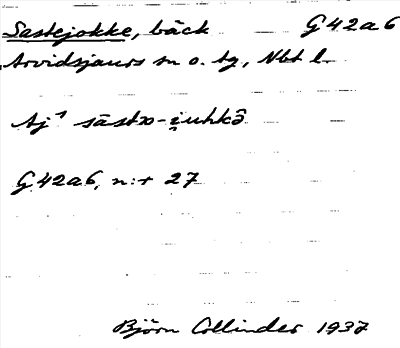 Sastejokke, bäck G42a6
Arvidsjaurs sn o. tg, Nbt l.
Aj¹ sāstɷ-i̯uhkɷ̂
G42a6, n:r 27
Björn Collinder 1937